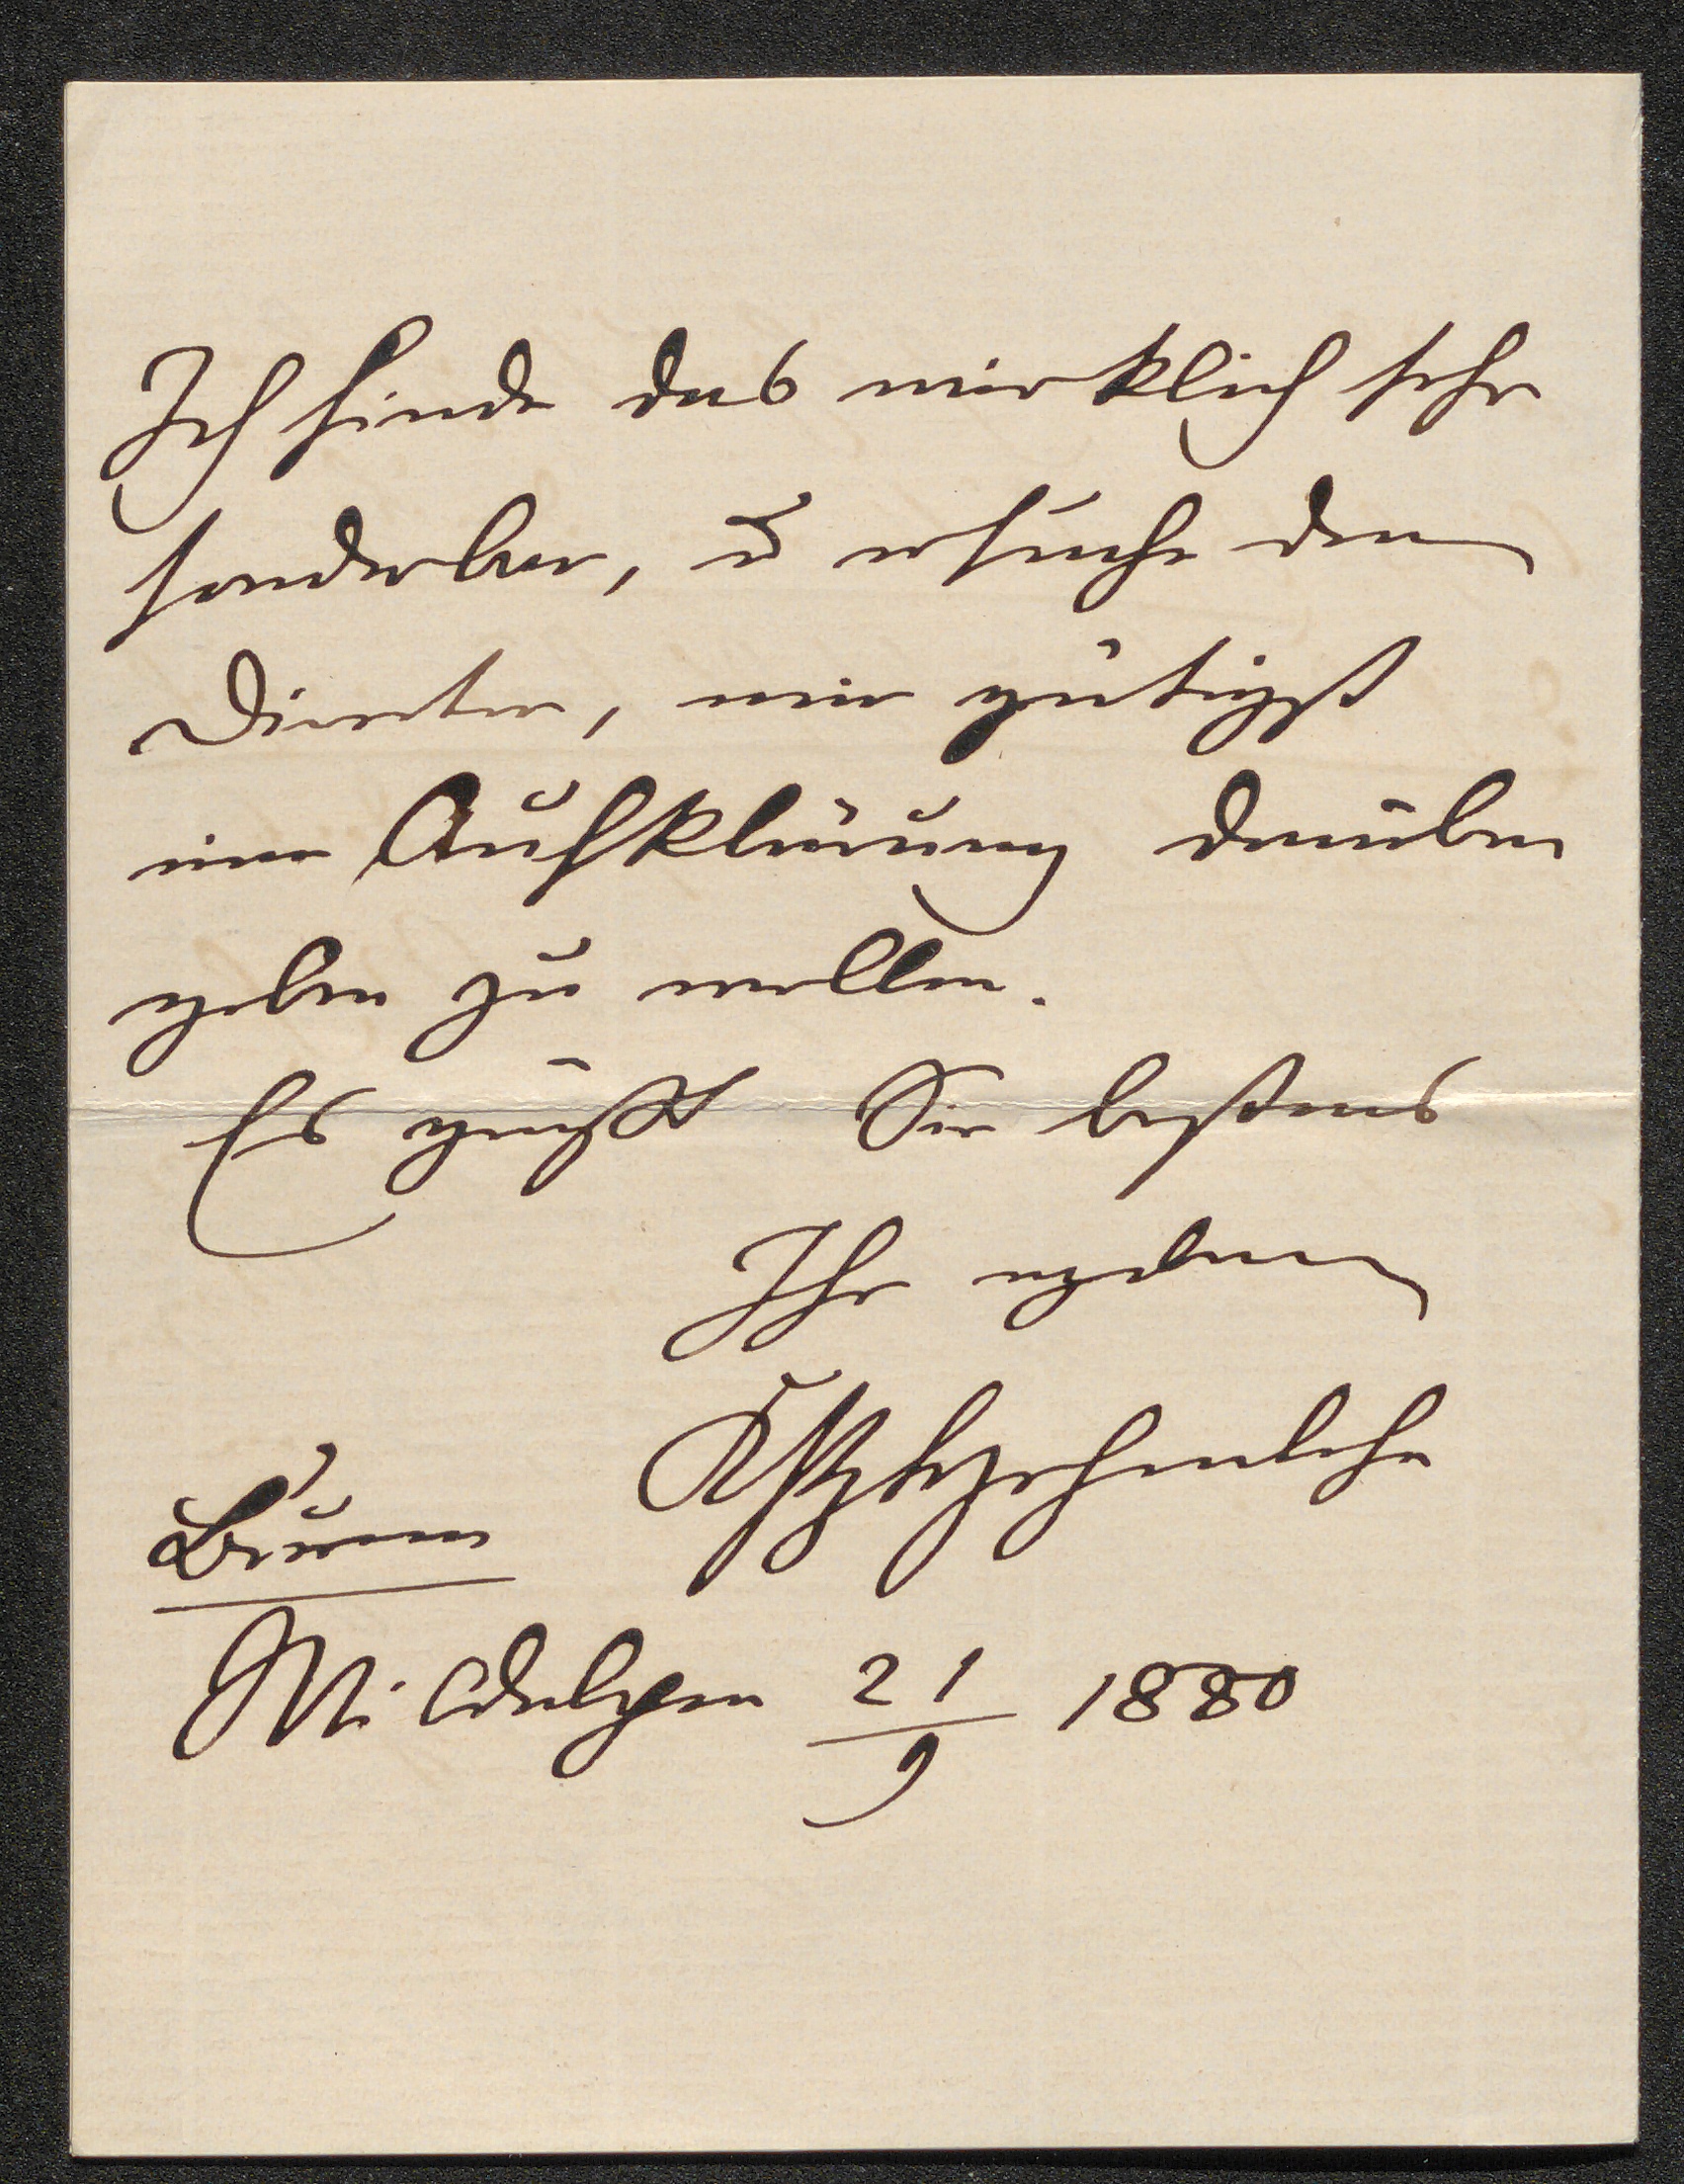 Ich finde das wirklich sehr
sonderbar, u ersuche den
Director, mir gütigst
eine Aufklärung darüber
geben zu wollen.
Es grüßt Sie bestens
Ihr ergebener
Brünn
21/9 1880